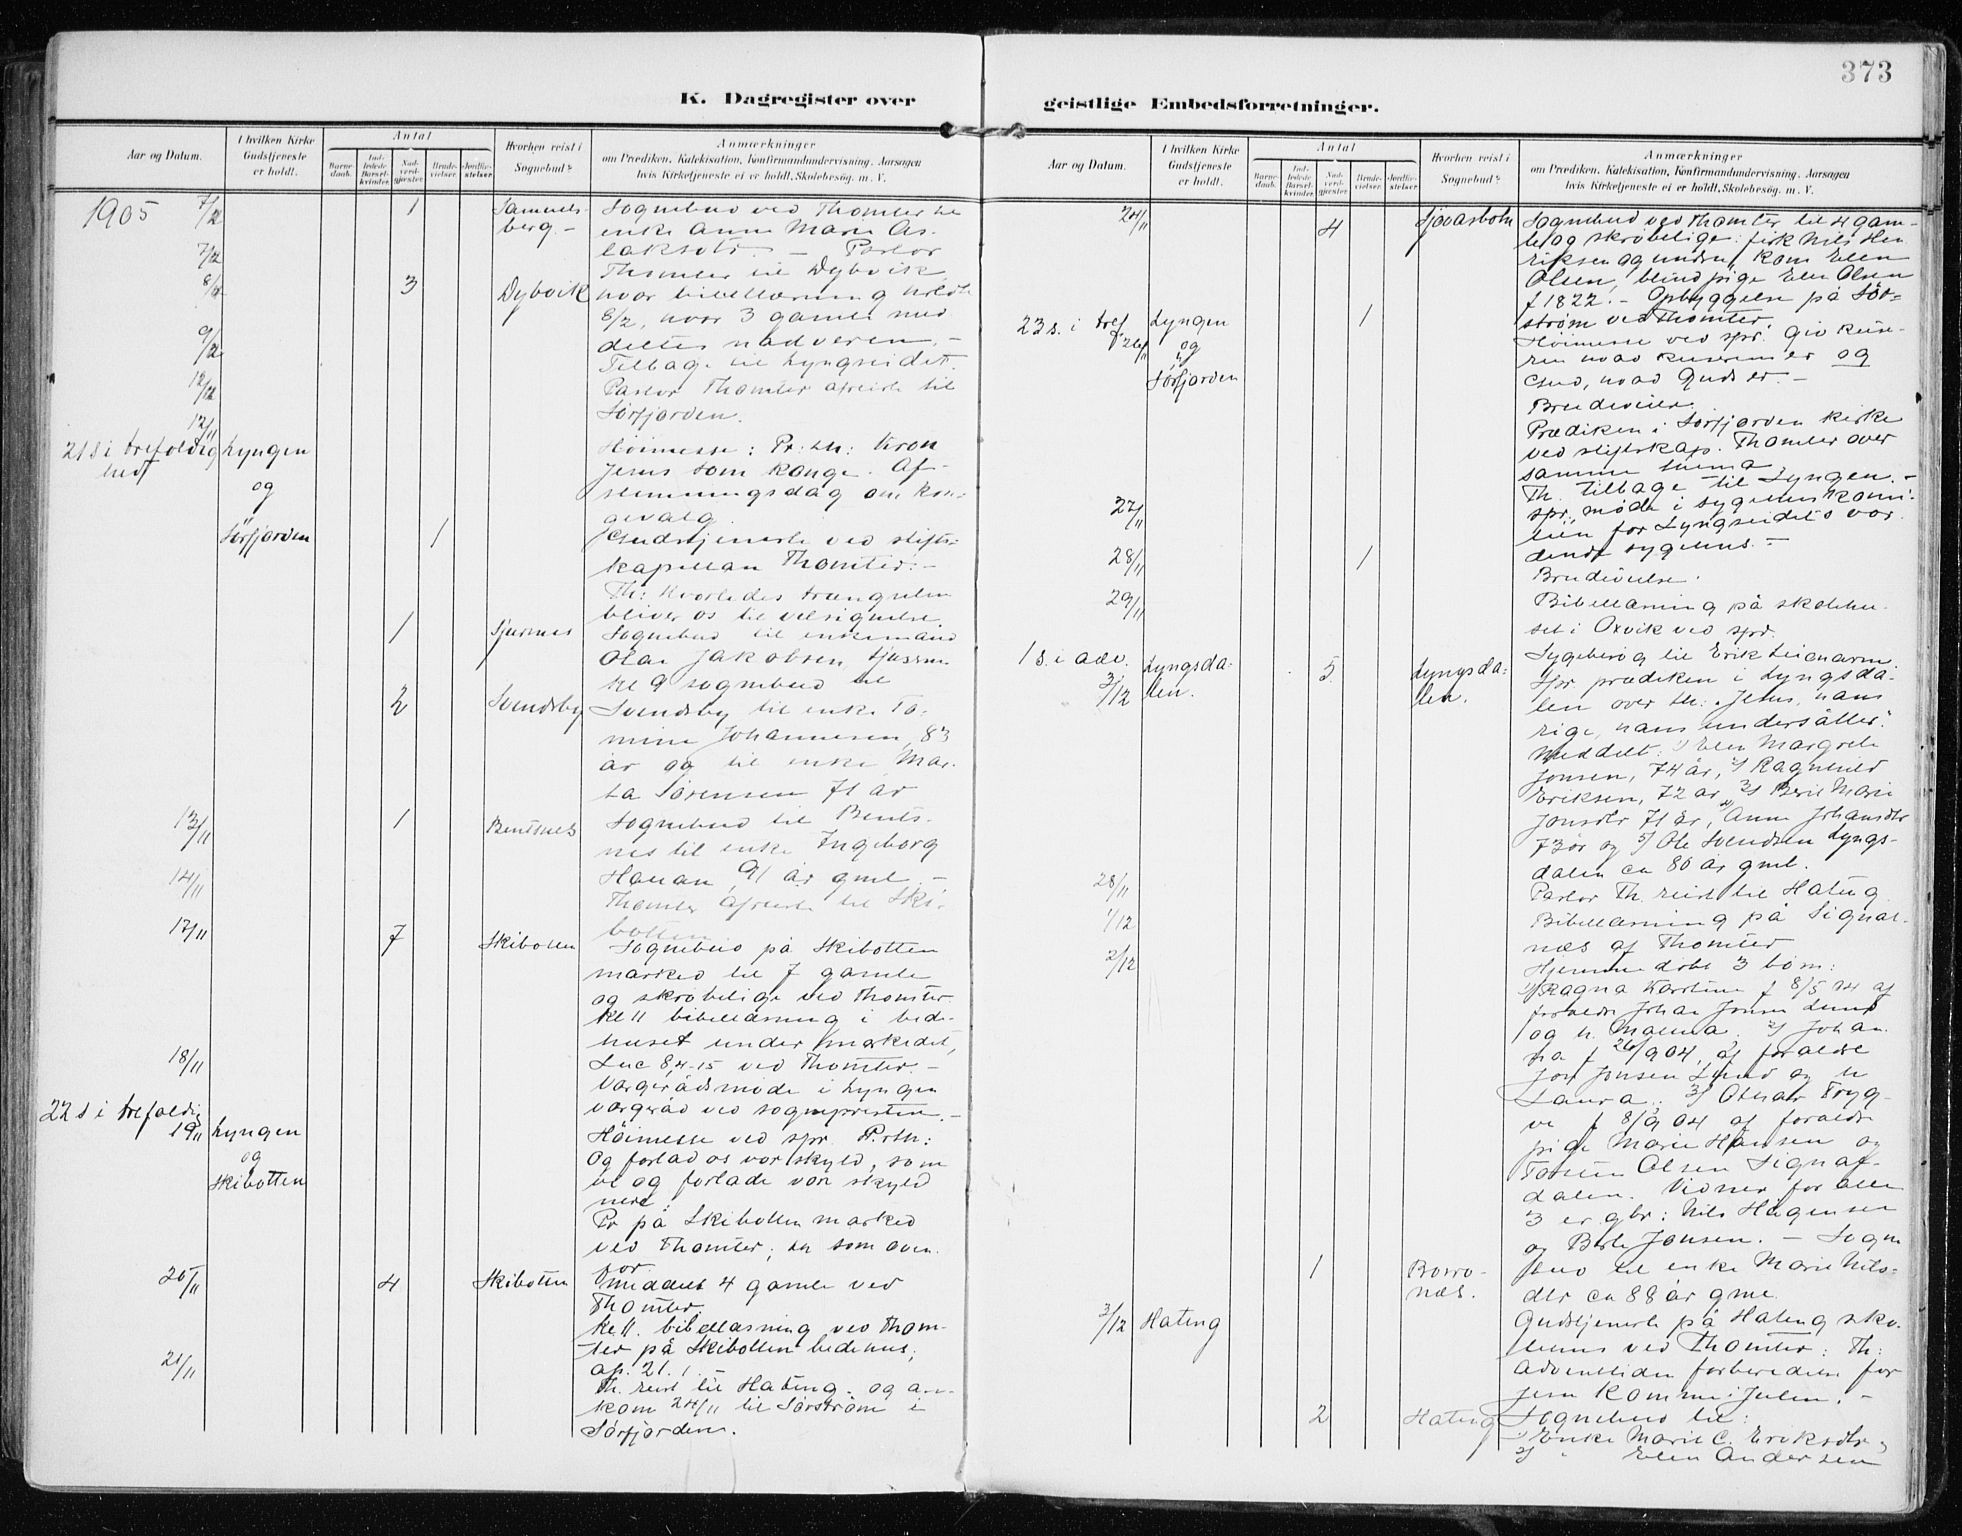 373
K. Dagregister over
Aar og Datum.
I hvilken Kirke
Gudstjeneste
er holdt.
Antal
Barne-
daab.
Ind-
ledede
Barsel-
kvinder.
Nad-
verd-
gjester.
Brude-
vielser.
Jordfæ-
stelser.
Hvorhen reist i
Sognebud?
Anmærkninger
om Prædiken, Katekisation, Konfirmandundervisning. Aarsagen
hvis Kirketjeneste ei er holdt, Skolebesøg. m. V.
1905 7/12 1 Samuels-
berg.- Sognebud ved Thomter til
enke Anne Marie As-
laksdtr. - Pastor
7/12 Thomter til Dybvik
8/12 3 Dybvik hvor bibellæsning holdt
8/2, hvor 3 gamle med
9/12 deltes nadveren. -
Tilbage til Lyngseidet.
12/12 Pastor Thomter afreiste til
Sørfjorden.
12/11
21 s i trefoldig
hed Lyngen
og
Sørfjorden 1 Høimesse: Pr: th:
Jesus som konge. Af-
stemningsdag om kon-
gevalg.
Gudstjeneste ved stifts-
kapellan Thomter: -
Th: Hvorledes trængselen
bliver os til velsignelse.
1 Sjursnes Sognebud til enkemand
Olai Jakobsen Sjursn.
kl 9 sognebud til
2 Svendsby Svendsby til enke To-
mine Johannesen, 83
år og til enke Mar-
ta Sørensen 71 år
13/11 1 Bentsnes Sognebud til Bents-
nes til enke Ingeborg
Hansn, 91 år gml. -
14/11 Thomter afreiste til Ski-
botten
17/11 7 Skibotten Sognebud på Skibotten
marked til 7 gamle
og skrøbelige ved Thomter.
Kl 11 bibellæsning i bede-
huset under markedet,
Luc 8,4-15 ved Thomter. -
18/11 Værgerådsmøde i Lyngen
værgeråd ved sognepresten. -
22 s i trefoldig
19/11 Lyngen
og
Skibotten Høimesse ved spr. Pr. th:
Og forlad os vor skyld, som
vi og forlade vore skyld
nere.
Pr på Skibotten marked
ved Thomter; th som oven
for
20/11 4 Skibotten meddelt 4 gamle ved
Thomter.
Kl 11. bibellæsning ved Thom-
ter på Skibotten bedehus;
21/11 ap. 21. 1.
Th. reist til Hating - og an-
kom 24/11 til Sørstrøm i
Sørfjorden.
geistlige Embedsforretninger.
Aar og Datum.
I hvilken Kirke
Gudstjeneste
er holdt.
Antal
Barne-
daab.
Ind-
ledede
Barsel-
kvinder.
Nad-
verd-
gjester.
Brude-
vielser.
Jordfæ-
stelser.
Hvorhen reist i
Sognebud?
Anmærkninger
om Prædiken, Katekisation, Konfirmandundervisning. Aarsagen
hvis Kirketjeneste ei er holdt, Skolebesøg. m. V.
24/11 4 Sjøvasbotn Sognebud ved Thomter til 4 gam-
le og skrøbelige: Nils Hen
riksen Ogmundsen, kone Elen
Olsen, blind pige Elen Olsen
f 1822. - Opbyggelse på Sør-
strøm ved Thomter.
23 s. i tref
26/11 Lyngen
og
Sørfjorden 1 Høimesse ved spr. giv keise-
ren hvad keiserens er og
Gud, hvad Guds er. -
Brudevielse.
Prædiken i Sørfjorden kirke
ved stiftskap. Thomter over
samme thema.
Th. tilbage til Lyngen. -
27/11 spr. møde i sygehuskomi-
teen for Lyngseidets vor
dende sygehus. -
28/11 1 Brudevielse.
29/11 Bibellæsning på skolehu-
set i Oxvik ved spr.
Sygebesøg til Erik
1 s. i adv.
3/12 Lyngsda-
len. 5 Lyngsda-
len. Spr prædiken i Lyngsda-
len over th: "Jesus, hans
rige, hans undersåtter."
Meddelt: 1) Elen Margrete
Jonsen, 74 år, 2) Ragnhild
Eriksen, 72 år, 3) Berit Marie
Jonsdtr 71 år, 4) Anne Johansdtr
73 år og 5) Ole Svendsen Lyngs-
dalen ca 80 år gml.
28/11 Pastor Th. reist til Hating
1/12 Bibellæsning på Signal-
næs af Thomter
2/12 Hjemmedøbt 3 børn:
1) Ragna f 8/5 04 af
forældre Johan Jonsen Lund
og h. Malena. 2) Johan
na f 26/9 04, af forældre
Jon Jonsen Lund og h
Laura. 3) Otelius Tryg-
ve f 8/9 04 af forældre
pige Marie Hansen og
Torsten Olsen Signal-
dalen. Vidner for alle
3 er gbr: Nils Hågensen
og Berte Jonsen. - Sogne
1 Borro-
næs. bud til enke Marie Nils-
dtr ca 88 år gml.
3/12 Hating Gudstjeneste på Hating sko-
lehus ved Thomter: Th:
Adventtiden forberedelse for
Jesu komme i Julen. -
2 Hating Sognebud til:
1) Enke Marit C. Eriksdtr,
2) " Elen Andersen